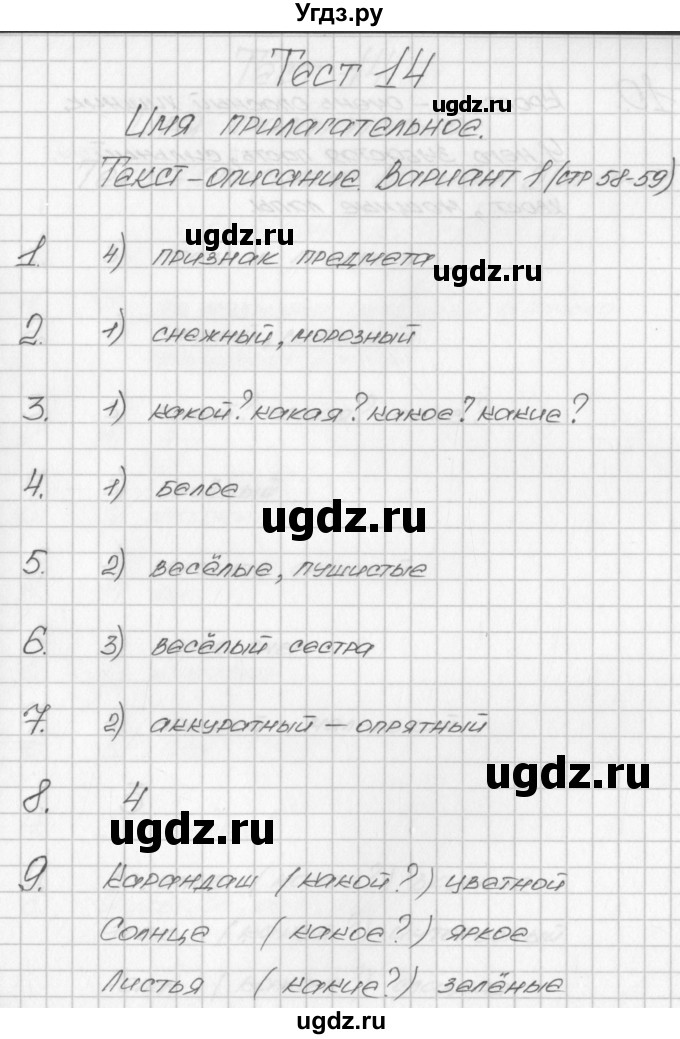 Угдз.ру
Тест 14
ugdz.ru
Имя прилагательное.
Текст-описание. Вариант 1 (стр 58-59)
ugdz.ru
1. 4) признак предмета
ugdz.ru
2. 1) снежный, морозный
3. 1) какой? какая? какое? какие?
4. 1) белое
ugdz.ru
5. 2) весёлые, пушистые
6. 3) весёлый сестра
7. 2) аккуратный – опрятный
ugdz.ru
8. 4
ugdz.ru
9. Карандаш (какой?) цветной
Солнце (какое?) яркое
Листья (какие?) зелёные
ugdz.ru